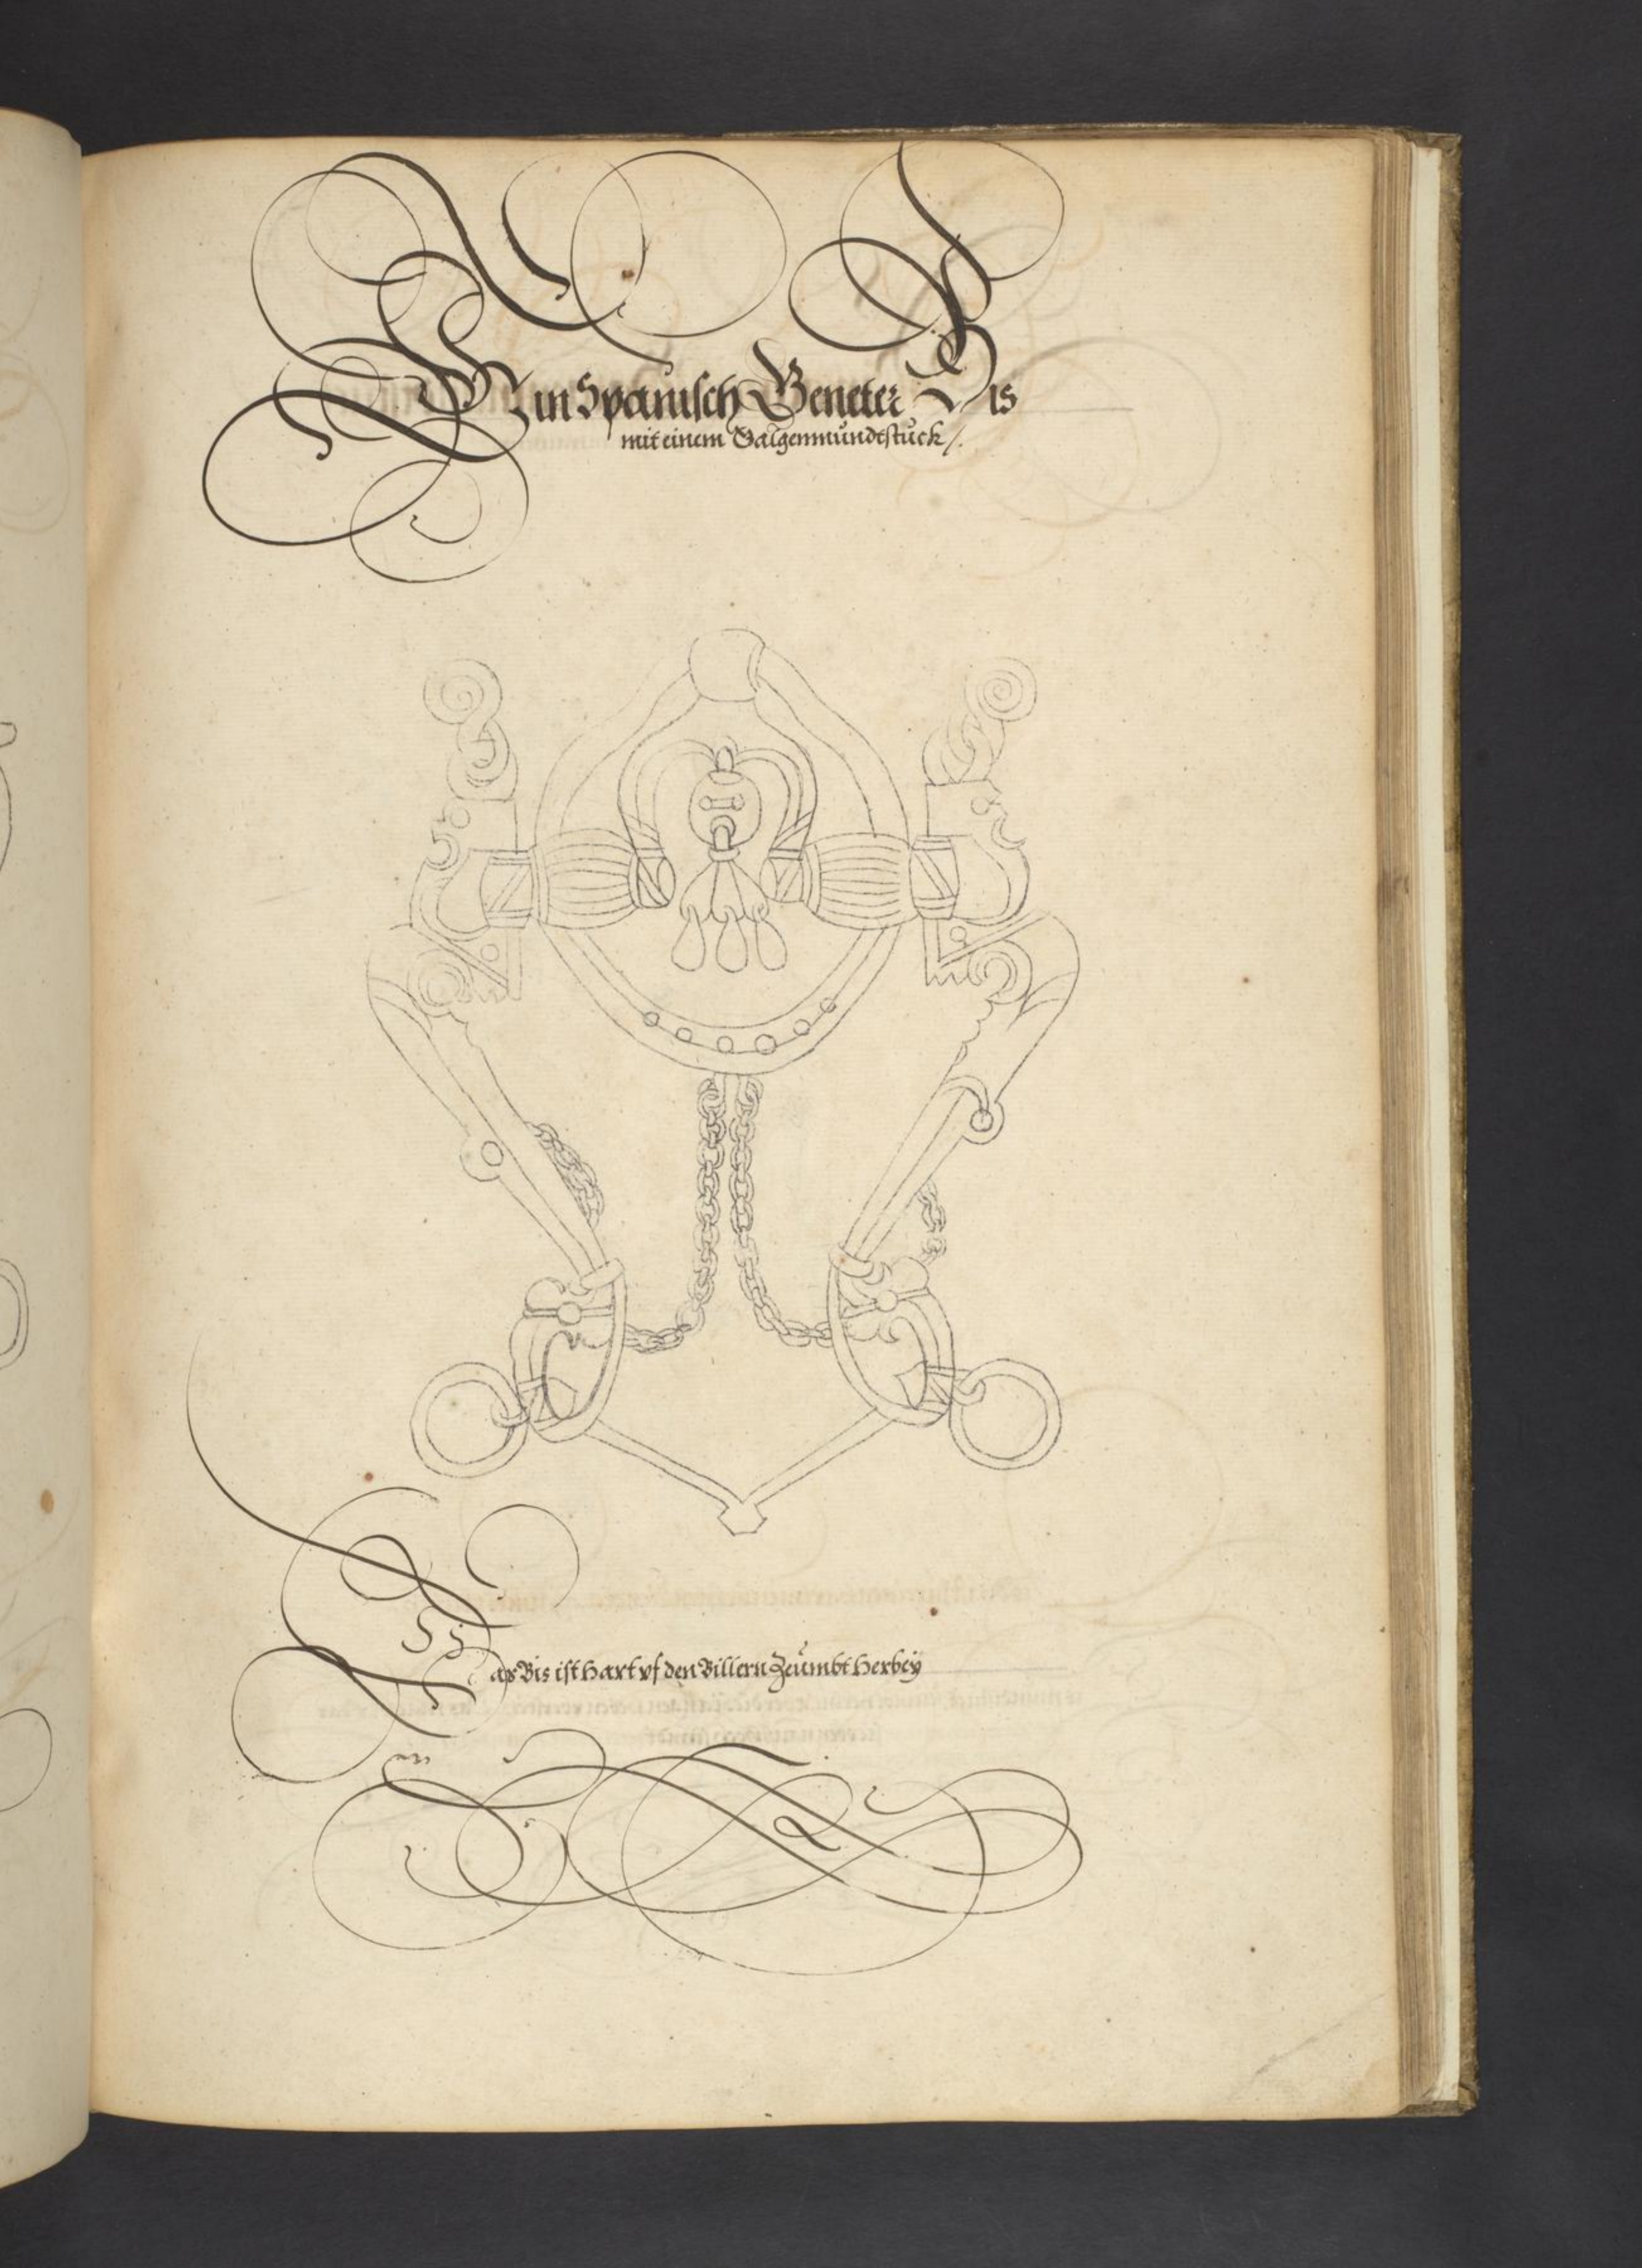 Ein Spanisch Geneter Bis
mit einem Galgenmundtstuck /.
Das Bis ist hart vf den Billern Zeumbt herbey